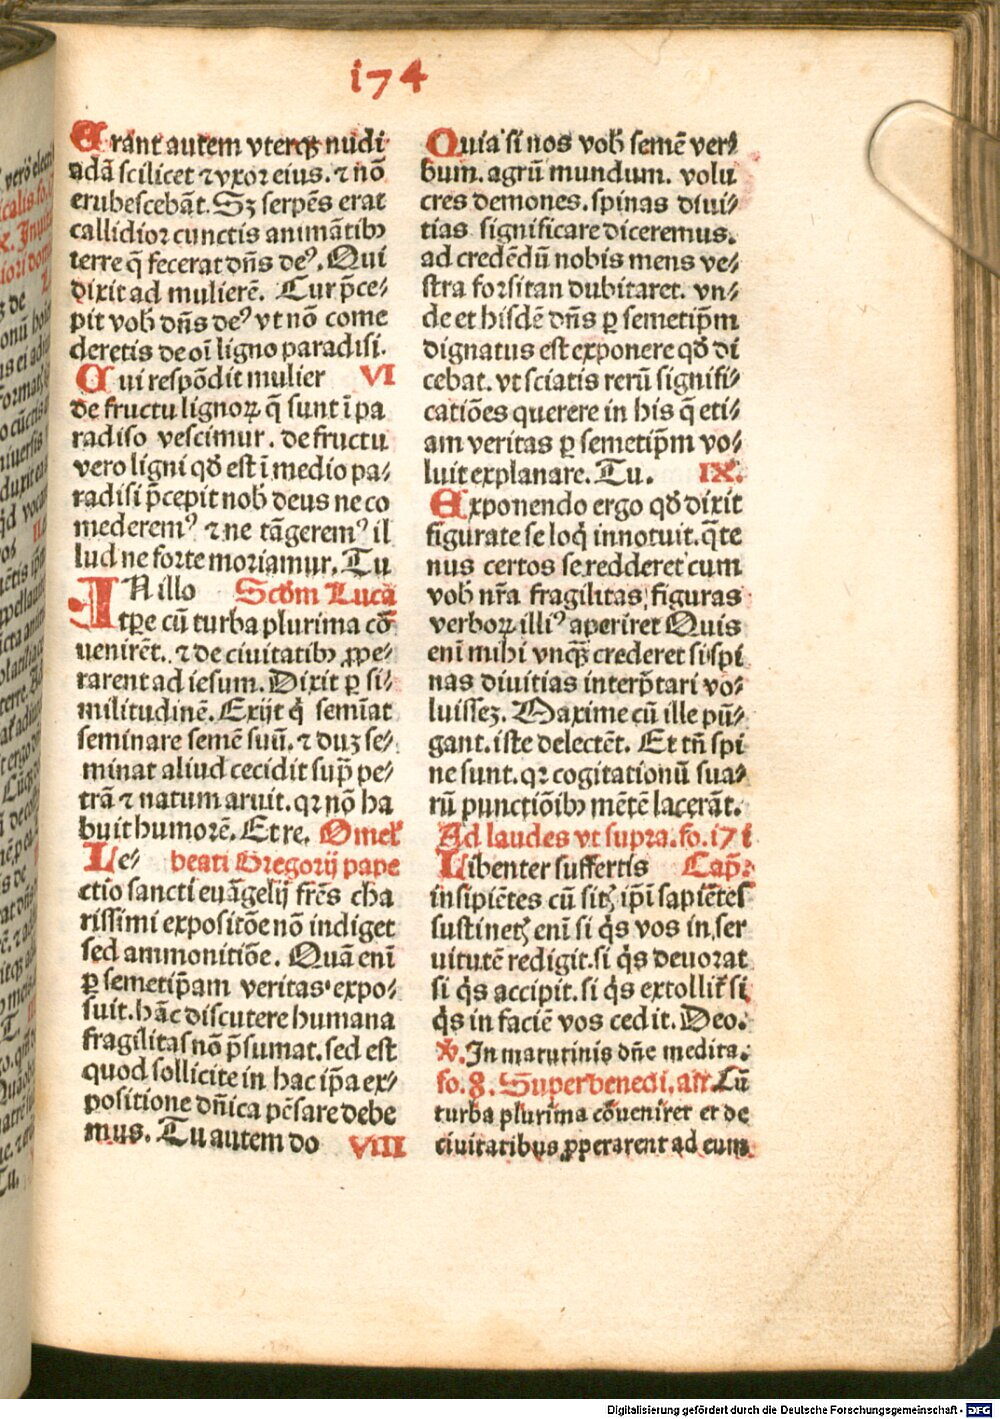 174
Erant autem vterqꝫ nudi
adā scilicet ⁊ vxor eius. ⁊ nō
erubescebāt. Sꝫ serpēs erat
callidior cunctis animātibꝫ
terre q̄ fecerat dn̄s deꝰ. Qui
dixit ad mulierē. Cur p̄ce⸗
pit vob̄ dn̄s deꝰ vt nō come
deretis de oī ligno paradisi.
Cui respōdit mulier VI
de fructu lignoꝝ q̄ sunt ī pa
radiso vescimur. de fructu
vero ligni qđ est ī medio pa⸗
radisi p̄cepit nob̄ deus ne co
mederemꝰ ⁊ ne tāgeremꝰ il
lud ne forte moriamur. Tu
IN illo Scđm Lucā
tꝑe cū turba plurima cō
uenirēt. ⁊ de ciuitatibꝫ ꝓpe⸗
rarent ad iesum. Dixit ꝑ si⸗
militudinē. Exijt q́ semīat
seminare semē suū. ⁊ duꝫ se⸗
minat aliud cecidit sup̄ pe⸗
trā ⁊ natum aruit. qꝛ nō ha
buit humorē. Et re. Omeł
Le⸗ beati Gregorij pape
ctio sancti euāgelij fr̄es cha
rissimi expositōe nō indiget
sed ammonitiōe. Quā enī
ꝑ semetip̄am veritas expo⸗
suit. hāc discutere humana
fragilitas nō p̄sumat. sed est
quod sollicite in hac ip̄a ex⸗
positione dn̄ica pēsare debe
mus. Tu autem do VIII
Quia si nos vob̄ semē ver⸗
bum. agrū mundum. volu
cres demones. spinas diui⸗
tias significare diceremus.
ad credēdū nobis mens ve⸗
stra forsitan dubitaret. vn⸗
de et hisdē dn̄s ꝑ semetip̄m
dignatus est exponere qđ di
cebat. vt sciatis rerū signifi⸗
catiōes querere in his q̄ eti⸗
am veritas ꝑ semetip̄m vo⸗
luit explanare. Tu. IX.
Exponendo ergo qđ dixit
figurate se loq́ innotuit. q̄te
nus certos se redderet cum
vob̄ nr̄a fragilitas figuras
verboꝝ illiꝰ aperiret Quis
enī mihi vnqꝫ̄ crederet si spi
nas diuitias interp̄tari vo⸗
luisseꝫ. Maxime cū ille pū⸗
gant. iste delectēt. Et tn̄ spi
ne sunt. qꝛ cogitationū sua⸗
rū punctiōibꝫ mētē lacerāt.
Ad laudes vt supra. fo. 171
Libenter suffertis Cap̄.
insipiētes cū sitꝭ ip̄i sapiētes
sustinetꝭ enī si q́s vos in ser
uitutē redigit. si q́s deuorat
si q́s accipit. si q́s extollit̄ si
q́s in faciē vos cedit. Deo.
℣. In matutinis dn̄e medita.
fo. 8. Super benedi. añ. Cū
turba plurima cōueniret et de
ciuitatibus ꝓperarent ad eum
Digitalisierung gefördert durch die Deutsche Forschungsgemeinschaft - DFG